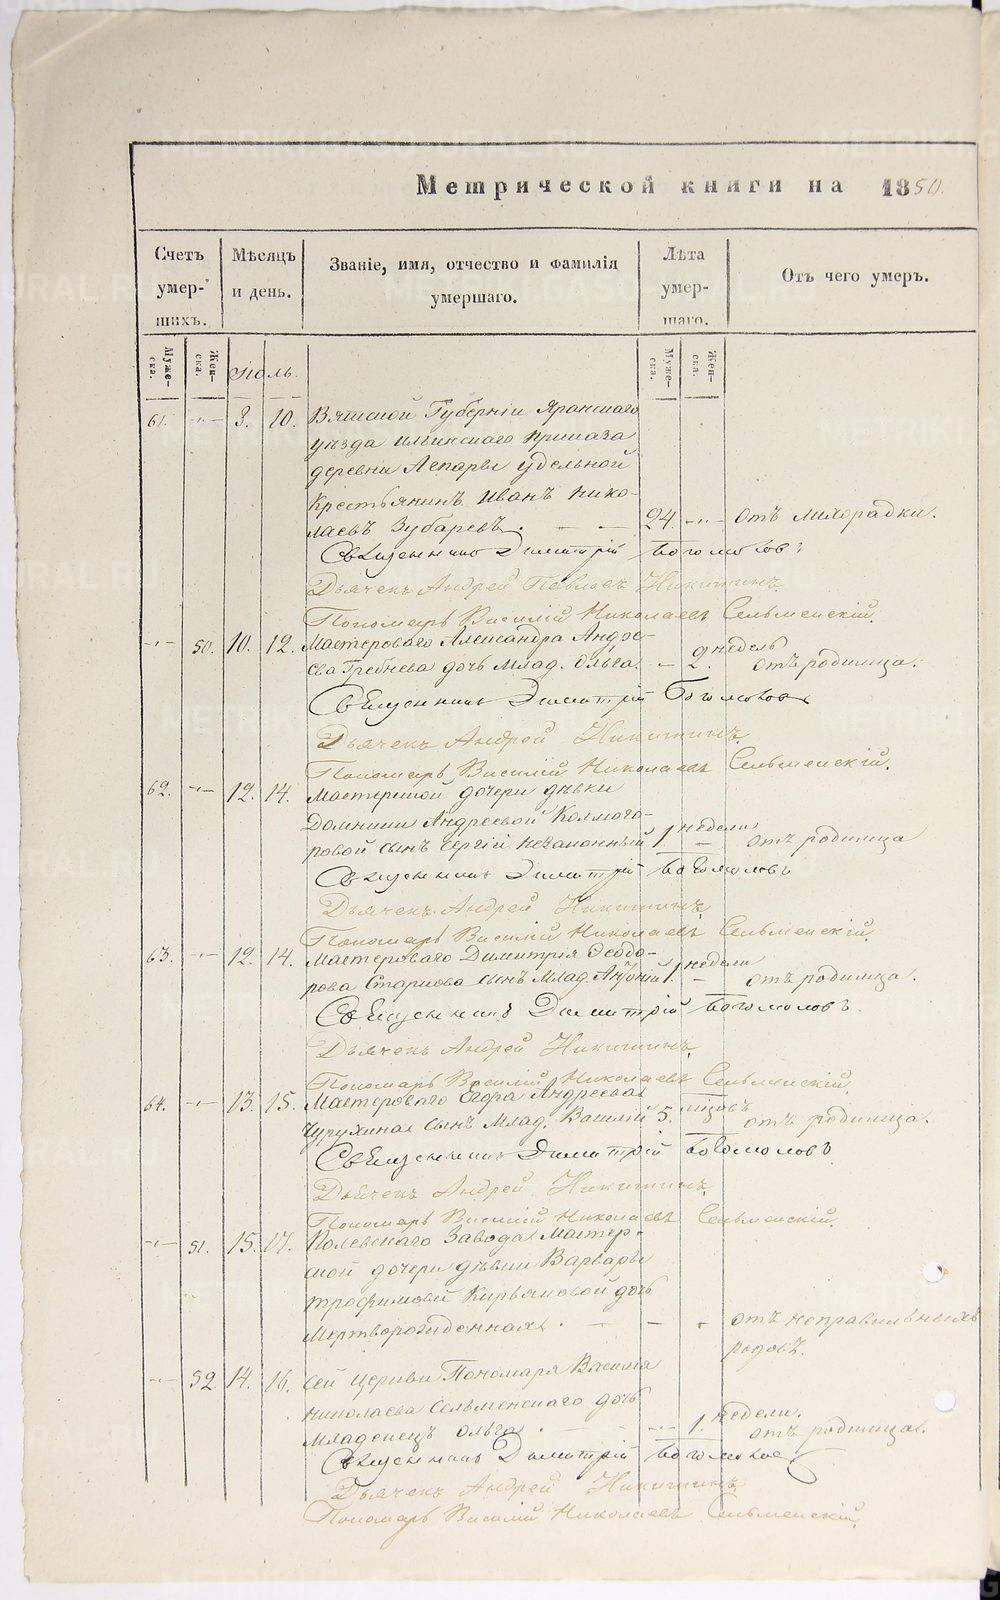 Метрической книги на 1850.
Счетъ умер-шихъ.
Мѣсяцъ и день.
Званіе, имя, отчество и фамилія умершаго.
Лѣта умер-шаго.
Отъ чего умеръ.
Муже-ска.
Жен-ска.
Іюль
Муже-ска.
Жен-ска.
61. 8. 10. Вятской Губерніи Яранскаго
уѣзда Ильинскаго приказа
деревни Лепары удельной
Крестьянинъ Иванъ Нико-
лаевъ Зубаревъ. 24. отъ лихорадки.
Священникъ Димитрій Богомоловъ
Дьячекъ Андрей Павловъ Никитинъ.
Пономарь Василій Николаевъ Сельменскій.
50. 10. 12. Мастероваго Александра Андре-
ева Гребнева дочь млад. Ольга. 2. недель отъ родимца.
Священникъ Димитрій Богомоловъ
Дьячекъ Андрей Никитинъ.
Пономарь Василій Николаевъ Сельменскій.
62. 12. 14. Мастерской дочери дѣвки
Домники Андреевой Колмого-
ровой сынъ Сергій незаконный 1 недели отъ родимца
Священникъ Димитрій Богомоловъ
Дьячекъ Андрей Никитинъ
Пономарь Василій Николаевъ Сельменскій.
63. 12. 14. Мастероваго Димитрія Ѳеодо-
рова Старкова сынъ млад. Антоній 1. недели отъ родимца.
Священникъ Димитрій Богомоловъ.
Дьячекъ Андрей Никитинъ.
Пономарь Василій Николаевъ Сельменскій.
64. 13. 15. Мастероваго Егора Андреева
Чурухина сынъ млад. Василій 5. мѣсяцовъ отъ родимца.
Священникъ Димитрій Богомоловъ
Дьячекъ Андрей Никитинъ.
Пономарь Василій Николаевъ Сельменскій.
51. 15. 17. Полевскаго Завода мастер-
ской дочери дѣвки Варвары
Трофимовой Кирьяновой дочь
Мертворожденная. отъ неправильныхъ
родовъ.
52 14. 16. Сей церкви Пономаря Василія
Николаева Сельменскаго дочь
Младенецъ Ольга. 1. недели. отъ родимца.
Священникъ Димитрій Богомоловъ
Дьячекъ Андрей Никитинъ
Пономарь Василій Николаевъ Сельменскій.
METRIKI.GASO-URAL.RU